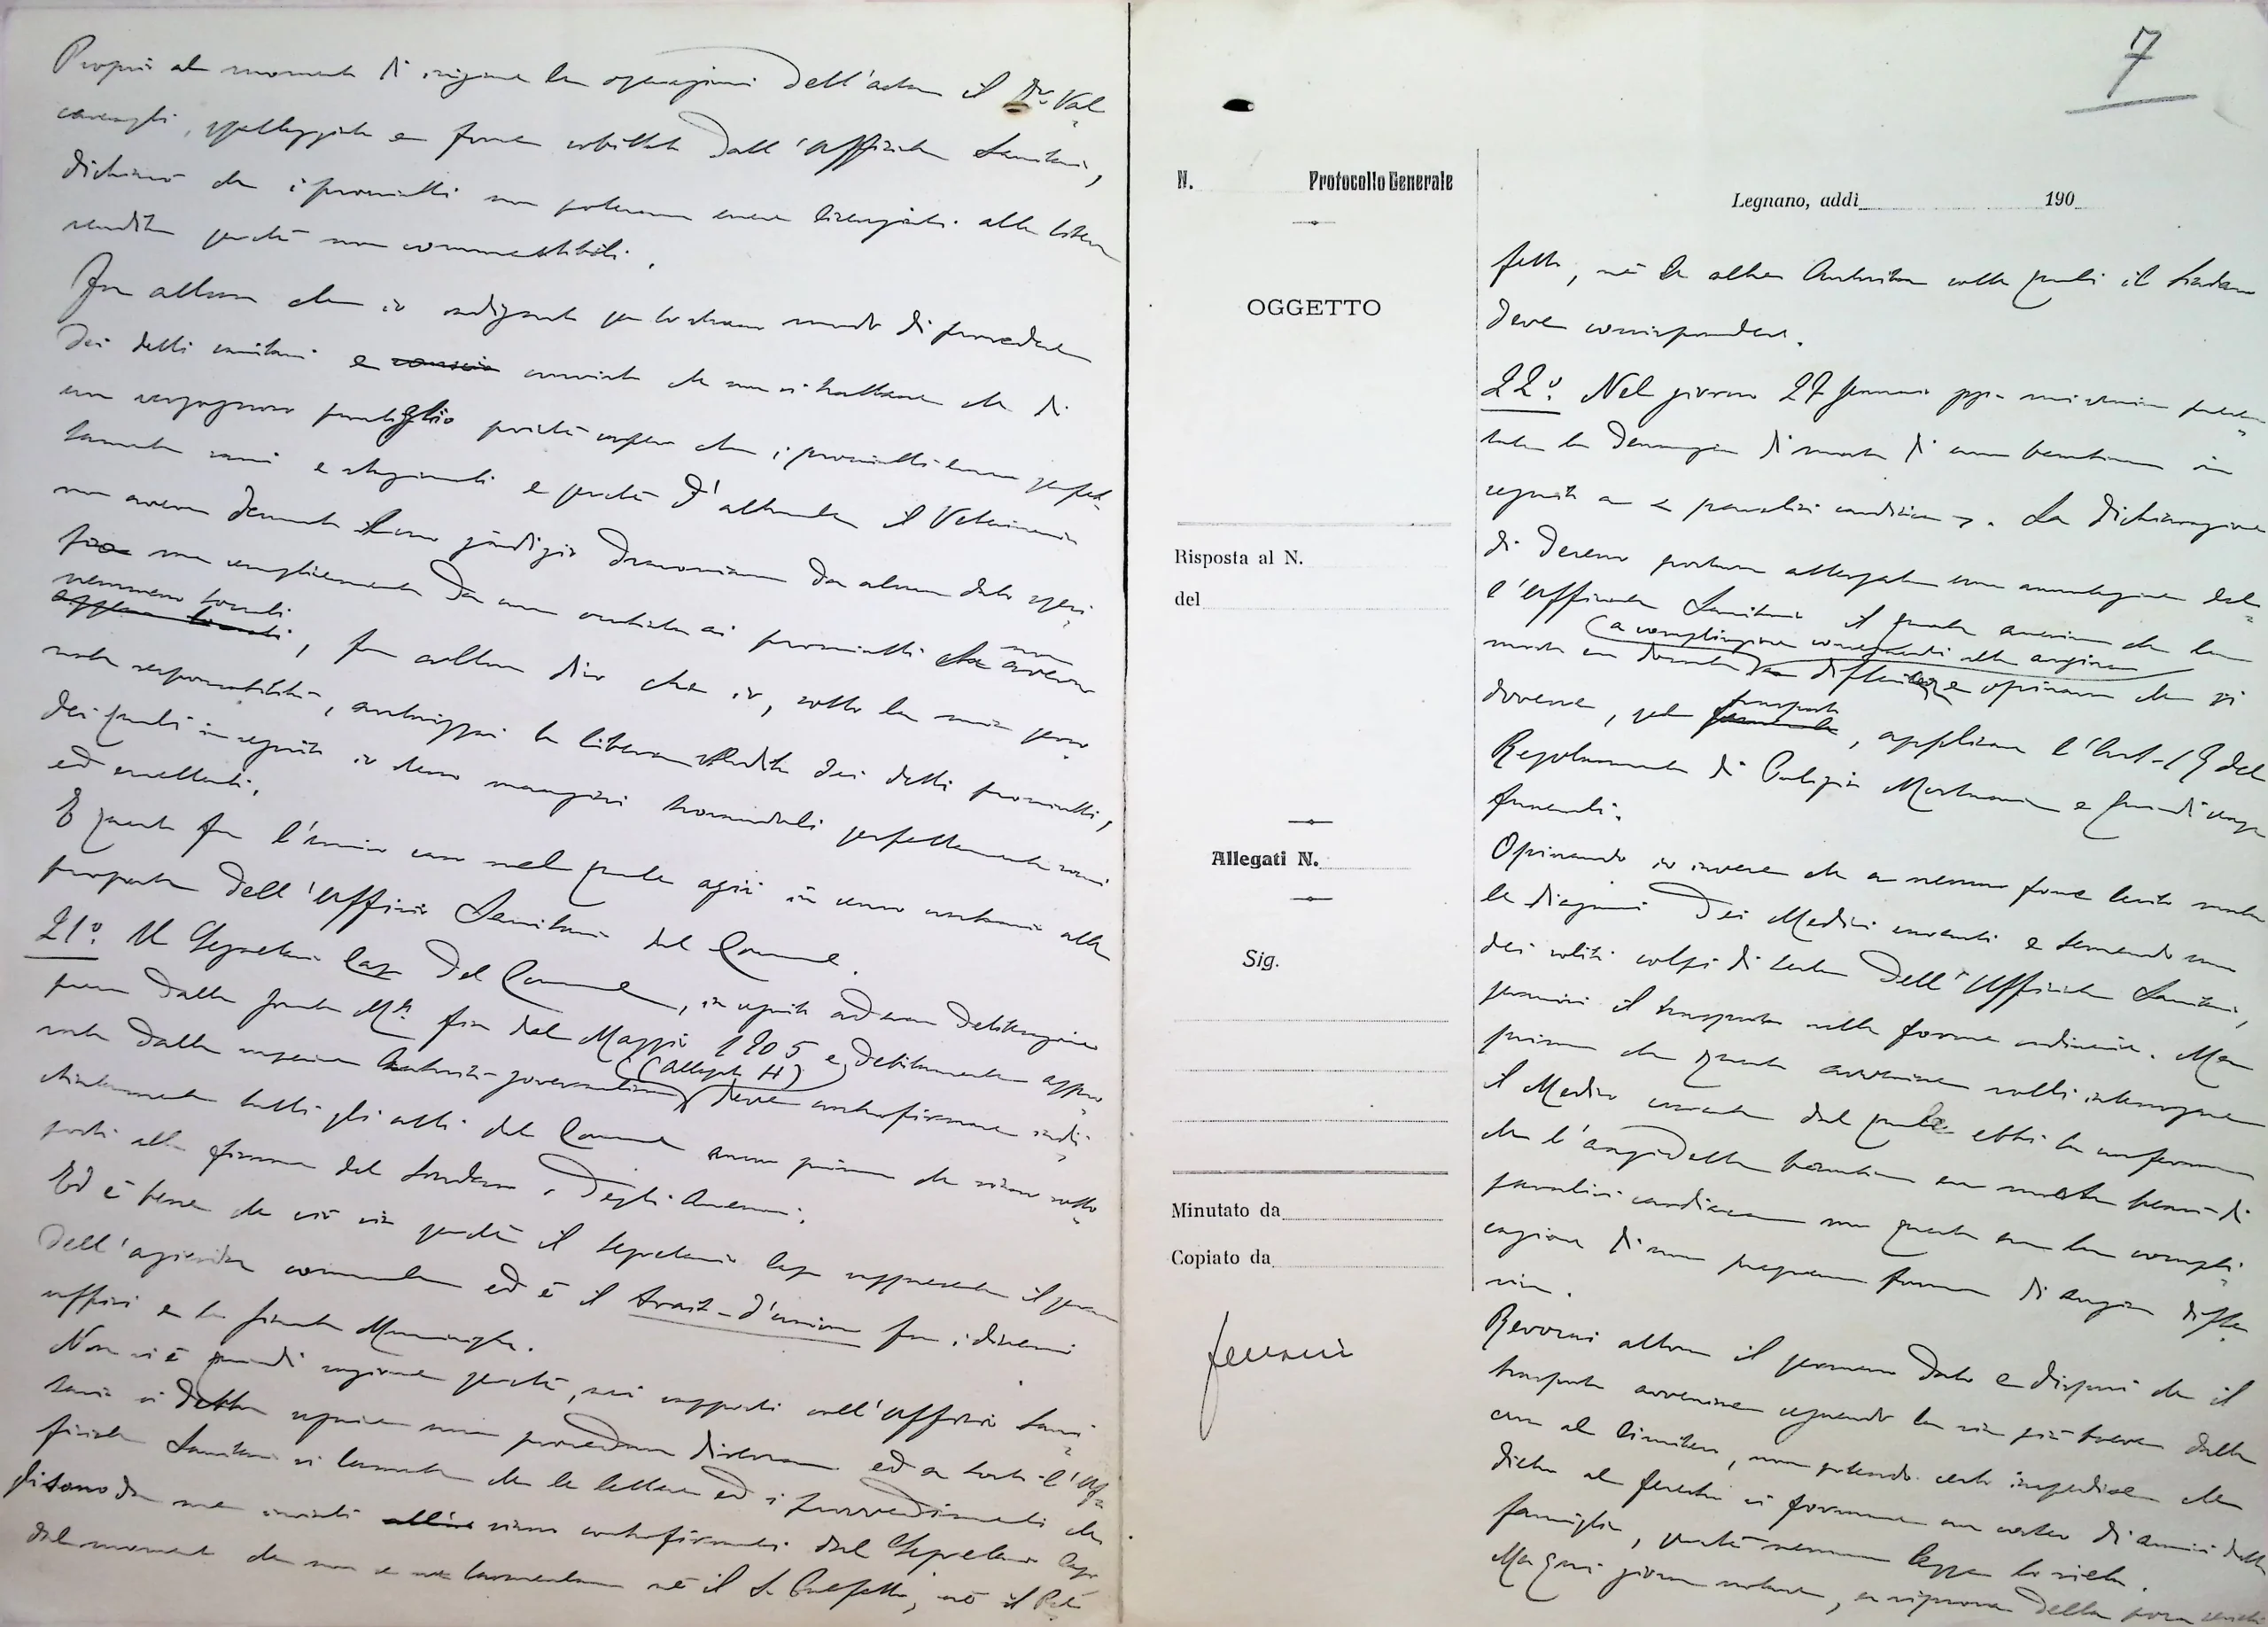 Proprio al momento di iniziare le operazioni dell'asta il Dr. Val
careghi, spalleggiato e forse sobillato dall'Ufficiale Sanitario,
dichiarò che i prosciutti non potevano essere licenziati alla libera
vendita perchè non commestibili.
Fu allora che io indignato per lo strano modo di procedere
dei detti sanitari e convinto che non si trattasse che di
un vergognoso puntiglio poichè sapevo che i prosciutti erano perfet
tamente sani e stagionati e perchè d'altronde il Veterinario
non aveva desunto il suo giudizio draconiano da alcun dato speri
ma semplicemente da una occhiata ai prosciutti che non aveva
nemmeno toccati, fu allora dico che io, sotto la mia perso
nale responsabilità, autorizzai la libera vendita dei detti prosciutti,
dei quali in seguito io stesso mangiai trovandoli perfettamente sani
ed eccellenti.
E questo fu l'unico caso nel quale agii in senso contrario alle
proposte dell'Ufficio Sanitario del Comune.
21º. Il Segretario Capo del Comune, in seguito ad una deliberazione
presa dalla Giunta Mle fin dal Maggio 1905 e debitamente appro
vata dalla superiore Autorità governativa (Allegato H) deve controfirmare indi
stintamente tutti gli atti del Comune ancor prima che siano sotto
posti alla firma del Sindaco o degli Assessori.
Ed è bene che ciò sia perchè il Segretario Capo rappresenta il perno
dell'azienda comunale ed è il trait-d'union fra i diversi
uffici e la Giunta Municipale.
Non vi è quindi ragione perchè, nei rapporti coll'Ufficio Sani
tario si debba seguire una procedura diversa ed a torto l'Uf
ficiale Sanitario si lamenta che le lettere ed i provvedimenti che
gli sono da me inviati siano controfirmati dal Segretario Capo
dal momento che non se ne lamentano nè il S. Prefetto, nè il
7
N. Protocollo Generale
Legnano, addi 190
OGGETTO
Risposta al N.
del
Allegati N.
Sig.
Minutato da
Copiato da
fetto, nè le altre Autorità colle quali il Sindaco
deve corrispondere.
22º. Nel giorno 27 gennaio pp. mi veniva presen
tata la denunzia di morte di una bambina in
seguito a "paralisi cardiaca". La dichiarazione
di decesso portava allegata una annotazione del
l'Ufficiale Sanitario il quale asseriva che la
(a complicazione conseguenti alla angina
morte era dovuta difterica e opinava che si
dovesse, pel trasporto, applicare l'Art. 19 del
Regolamento di Polizia Mortuaria e quindi senza
funerali.
Opinando io invece che a nessuno fosse lecito mutare
le diagnosi dei Medici curanti e temendo uno
dei soliti colpi di testa dell'Ufficiale Sanitario,
permisi il trasporto nelle forme ordinarie. Ma
prima che questo avvenisse volli interrogare
il Medico curante dal quale ebbi la conferma
che l'anzidetta bambina era morta bensì di
paralisi cardiaca ma questa era la compli
cazione di una pregressa forma di angina difte
rica.
Revocai allora il permesso dato e disposi che il
trasporto avvenisse seguendo la via più breve dalla
casa al Cimitero, non potendo certo impedire che
dietro al feretro si formasse un corteo di amici della
famiglia, perchè nessuna legge lo vieta.
Ma ogni giorno notavo, a riprova della poca